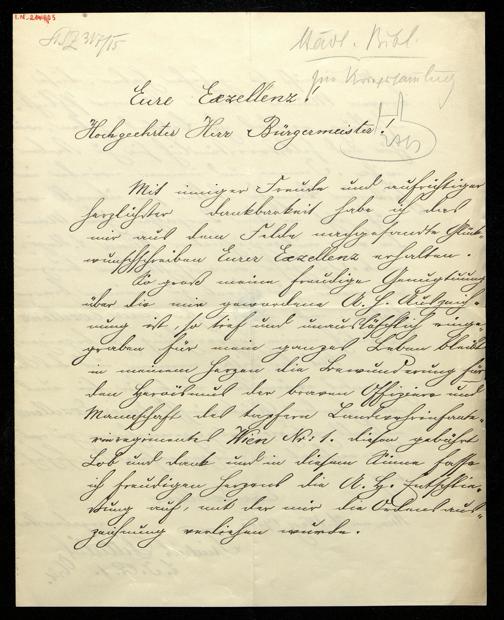 I.N. 204805
317/15
Städt. Bibl.
zur Kriegssammlung
Eure Exzellenz!
Hochgeehrter Herr Bürgermeister!
Mit inniger Freude und aufrichtiger
herzlichster dankbarkeit habe ich das
mir aus dem Felde nachgesandte Glück-
wunschschreiben Eurer Exzellenz erhalten.
So groß meine freudige Genugtuung
über die mir gewordene A. H. Auszeich-
nung ist, so tief und unauslöschlich einge-
graben für mein ganzes Leben bleibt
in meinem Herzen die Bewunderung für
den Heroismus der braven Offiziere und
Mannschaft des tapfern Landwehrinfante-
rieregimentes Wien Nr: 1. diesen gebührt
Lob und dank und in diesem Sinne fasse
ich freudigen Herzens die A. H. Entschlie-
ßung auf, mit der mir die Ordensaus-
zeichnung verliehen wurde.